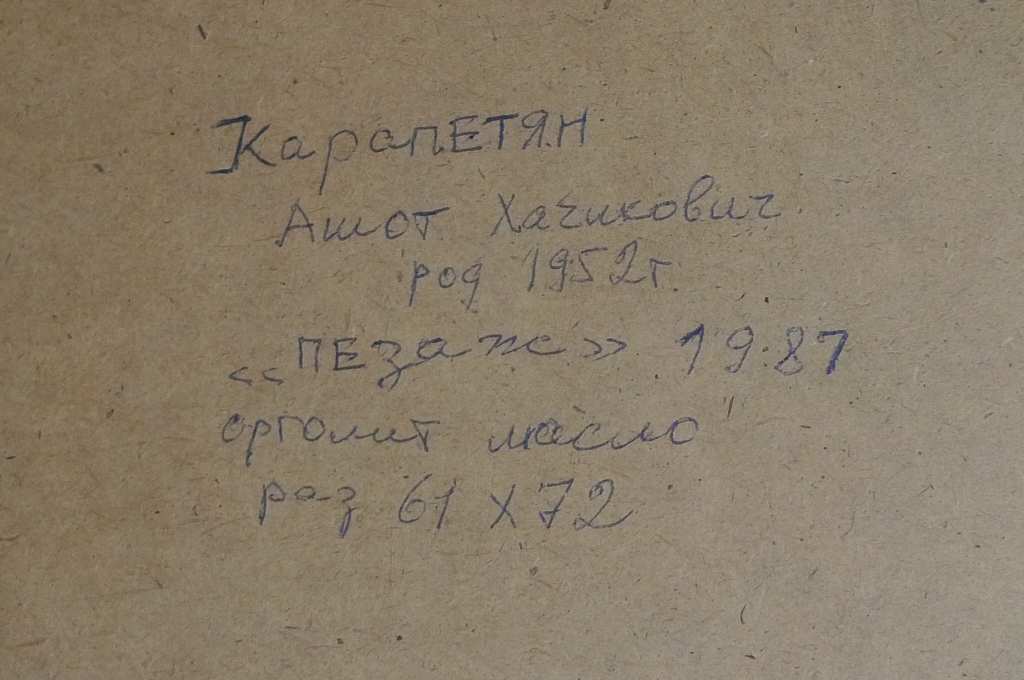 КарапЕТЯН
Ашот Хачикович
род 1952г.
«ПЕзаж» 19.87
орголит масло"
раз 61 х 72